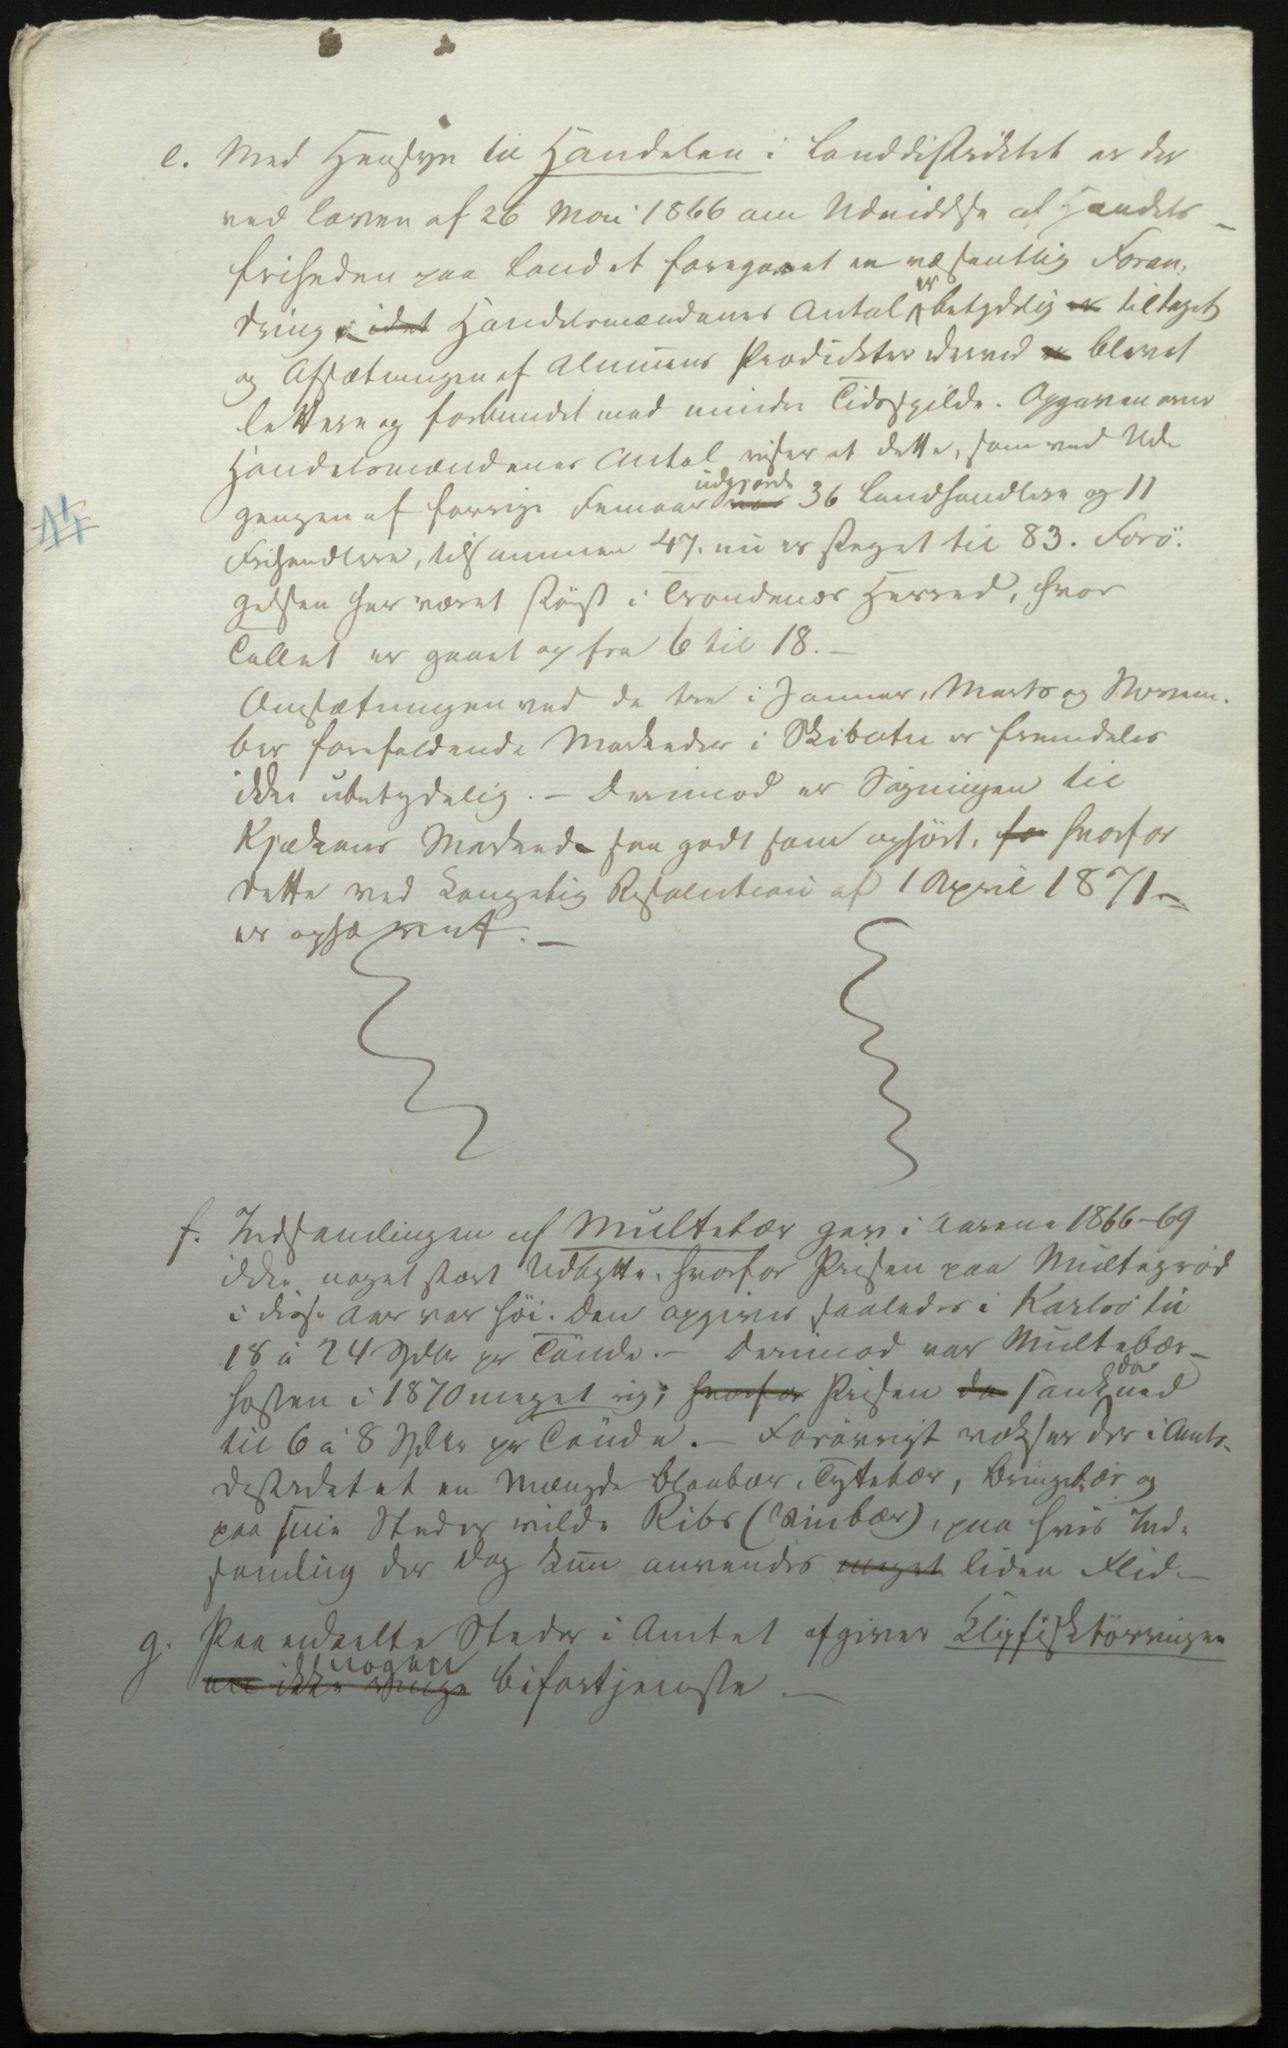 e. Med Hensyn til Handelen i Landdistriktet er der
ved Loven af 26 Mai 1866 om Udvidelse af Handels-
friheden paa Landet foregaaet en væsentlig Foran-
dring, idet Handelsmændenes Antal er betydelig er tiltaget
og Afsætningen af Almuens Produkter derved er blevet
lettere og forbundet med mindre Tidsspilde. Opgaven over
Handelsmændenes Antal viser at dette, som ved Ud-
gangen af forrige Femaar var udgjorde 36 Landhandlere og 11
Frihandlere, tilsammen 47. nu er steget til 83. Forø-
gelsen har været størst i Trondenæs Herred, hvor
Tallet er gaaet op fra 6 til 18.—
Omsætningen ved de tre i Januar, Marts og Novem-
ber forefaldende Markeder i Skibotn er fremdeles
ikke ubetydelig.— Derimod er Søgningen til
Kjækens Marked saa godt som ophørt, hvorfor
dette ved Kongelig Resolution af 1 April 1871
er ophævet.—
f. Indsamlingen af Multebær gav i Aarene 1866-69
ikke noget stort Udbytte, hvorfor Prisen paa Multegrød
i disse Aar var høi. Den opgives saaledes i Karlsø til
18 à 24 Spdlr pr Tønde.— Derimod var Multebær-
høsten i 1870 meget rig; hvorfor Prisen da sank da ned
til 6 à 8 Spdlr pr Tønde.— Forøvrigt vokser der i Amts-
distriktet en Mængde Blaabær, Tytebær, Bringebær og
paa sine Steder vilde Ribs (Vinbær), paa hvis Ind-
samling der dog kun anvendes meget liden Flid.—
g. Paa enkelte Steder i Amtet afgiver Klipfisktørringen
en ikke ringe nogen Bifortjeneste.—
11